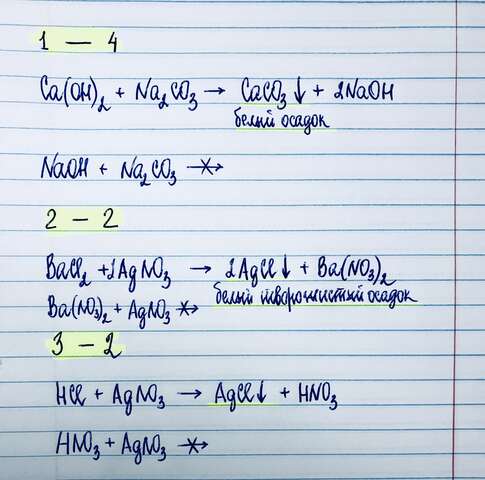 1 — 4
Ca(OH)₂ + Na₂CO₃ → CaCO₃↓ + 2NaOH
белый осадок
NaOH + Na₂CO₃ -×→
2 — 2
BaCl₂ + 2AgNO₃ → 2AgCl↓ + Ba(NO₃)₂
белый творожистый осадок
Ba(NO₃)₂ + AgNO₃ -×→
3 — 2
HCl + AgNO₃ → AgCl↓ + HNO₃
HNO₃ + AgNO₃ -×→